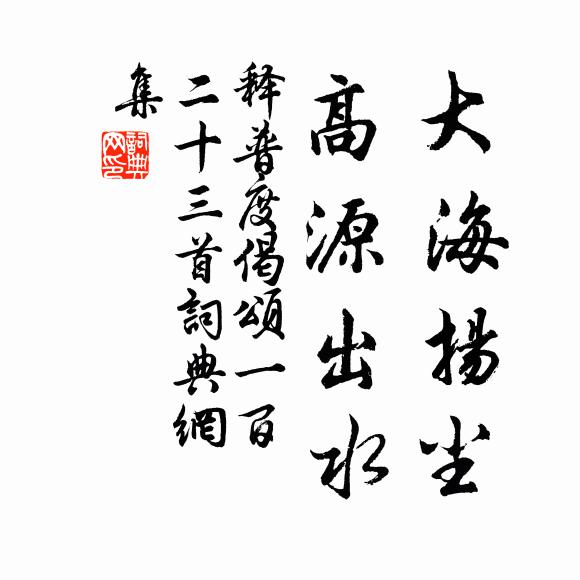 大海揚尘
高源出水
释普度偈頌一百
二十三首詞典網
集
詞典網印